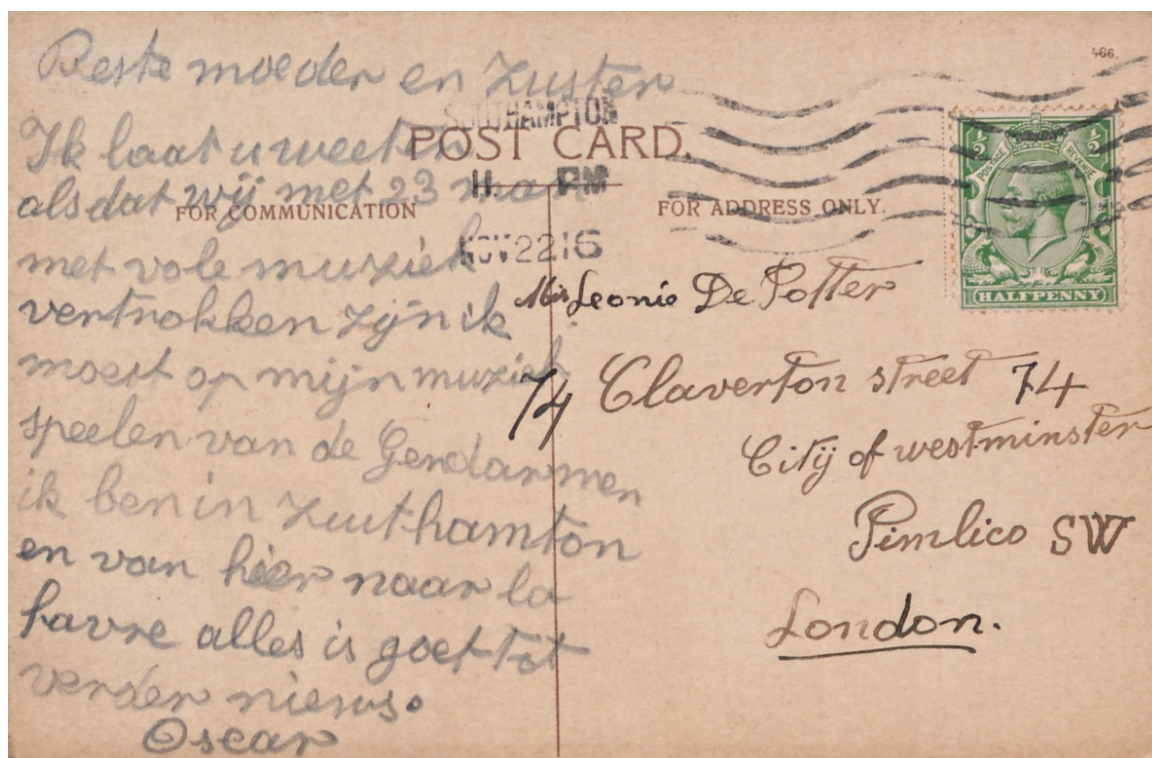 Beste moeder en Zuster
Ik laat u weeten
als dat wij met 23 man
met vole muziek
vertrokken zijn ik
moest op mijn muziek
speelen van de Gendarmen
ik ben in Zuuthamton
en van hier naar la
havre alles is goet tot
verder nieuws.
Oscar
466
SOUTHAMPTON
POST CARD.
PM
NOV 22 16
FOR COMMUNICATION
FOR ADDRESS ONLY.
½ ½
POSTAGE REVENUE
HALFPENNY
Leonie De Potter
74 Claverton street 74
Citÿ of westminster
Pimlico SW
London.